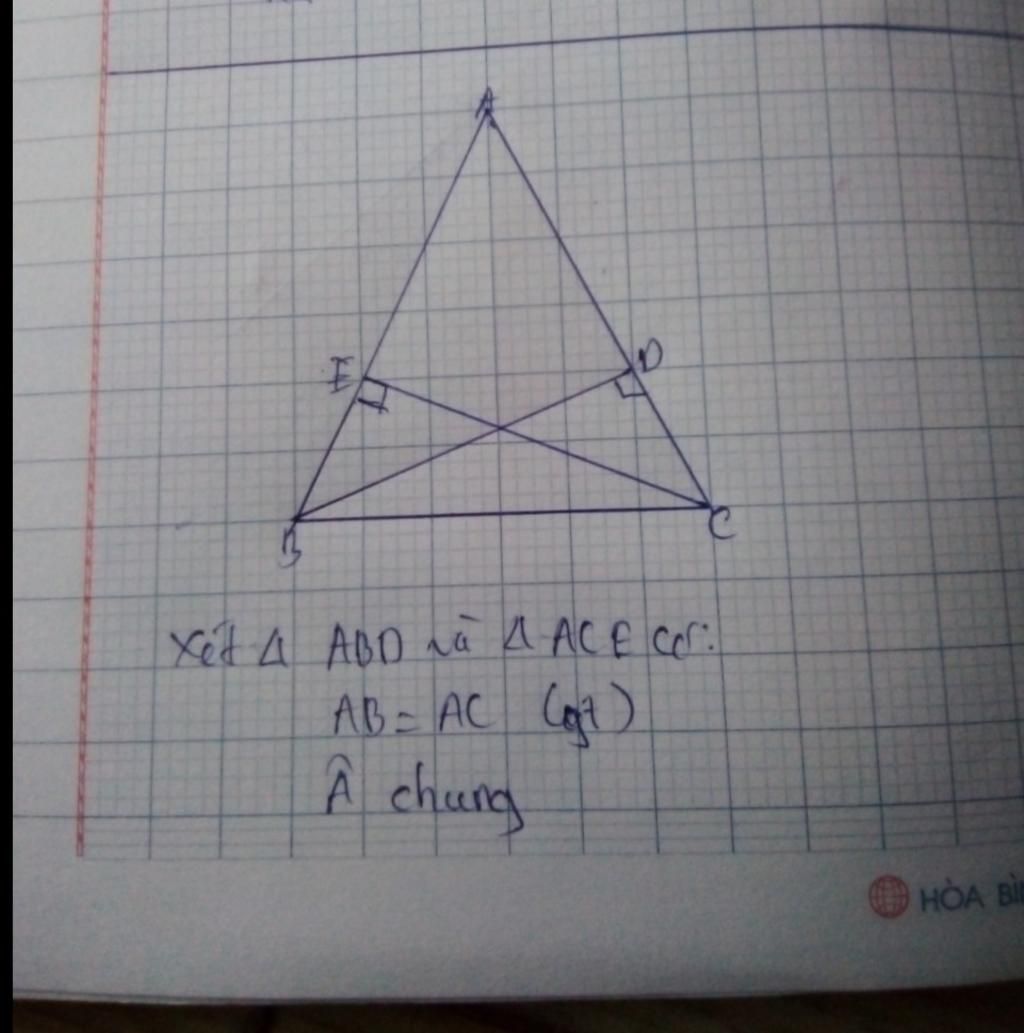 A
E
D
B
C
Xét Δ ABD và Δ ACE có:
AB = AC (gt)
Â chung
HÒA BÌN